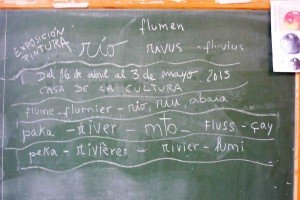 flumen
EXPOSICIÓN
PINTURA río rivus - fluvius
Del 16 de abril al 3 de mayo 2013
CASA DE LA CULTURA
flome - flumier - río, riu, abaia
paka - river - mto - fluss - çay
peka - rivièrer - rivier - lumi